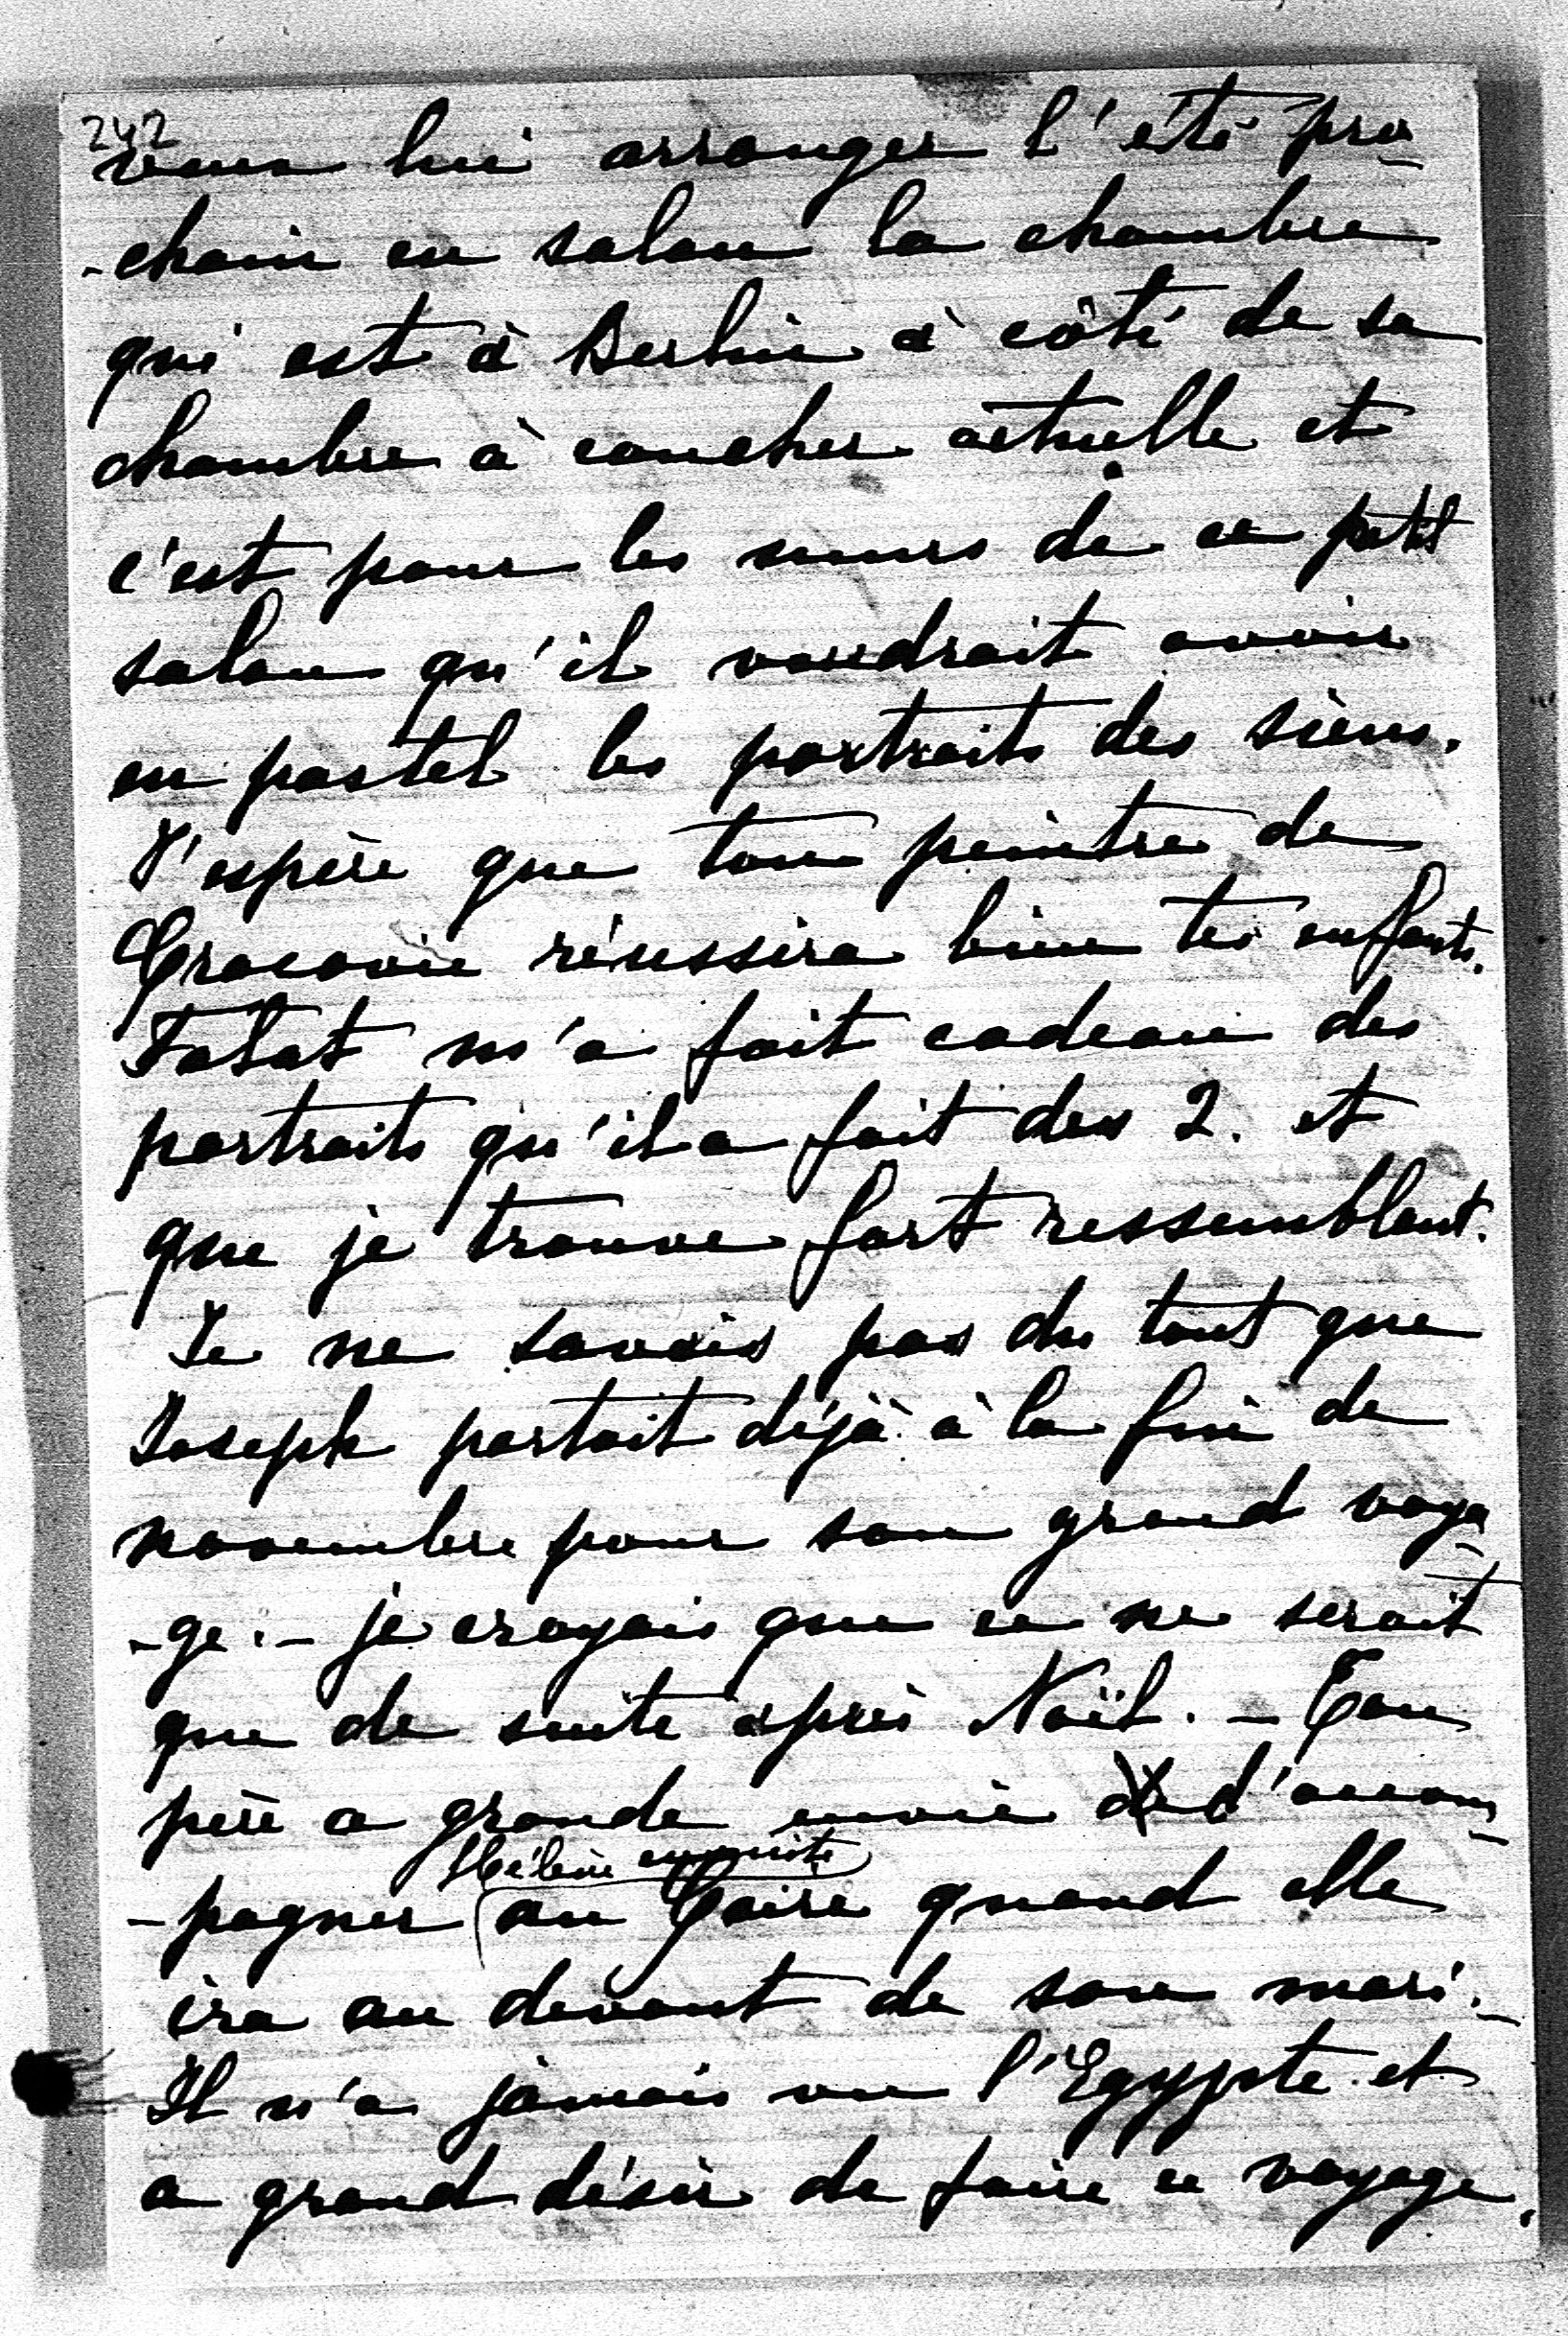 242
vous lui arranger l'été pro
-chain en salon la chambre
qui est à Berlin à côté de sa
chambre à coucher actuelle et
c'est pour les murs de ce petit
salon qu'il voudrait avoir
en pastel les portraits des siens.
J'espère que ton peintre de
Cracovie réussira bien tes enfants.
Falat m'a fait cadeau des
portraits qu'il a fait des 2. et
que je trouve fort ressemblant.
Je ne savais pas du tout que
Joseph partait déjà à la fin de
novembre pour son grand voya
-ge. - je croyais que ce ne serait
que de suite après Noël. - Ton
père a grande envie d'accom
Hélène ensuite
-pagner au Caire quand elle
ira au devant de son mari. -
Il n'a jamais vu l'Egypte et
a grand désir de faire ce voyage.